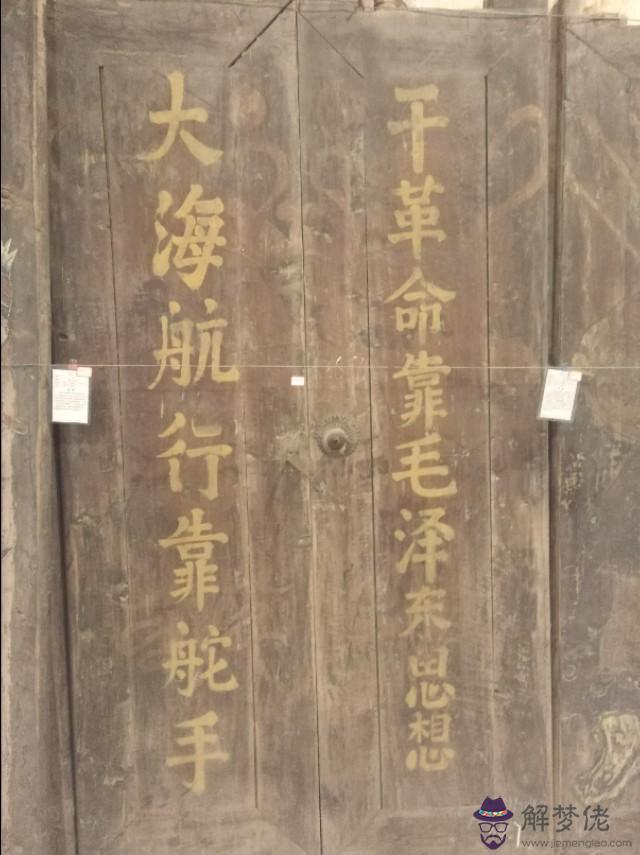 大海航行靠舵手
干革命靠毛泽东思想
解梦佬
www.jiemenglao.com